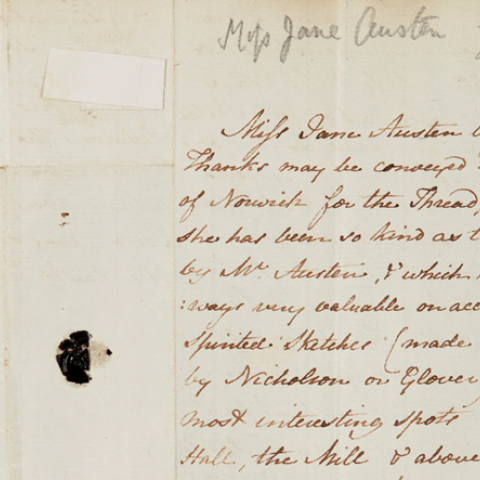 Miss Jane Austen
Miss Jane Austen
Thanks may be conveyed
of Norwich for the Thread,
she has been so kind as t
by Mr. Austen, & which
:ways very valuable on acc
spirited Sketches (made
by Nicholson or Glover
most interesting spots
Hall, the Mill & above